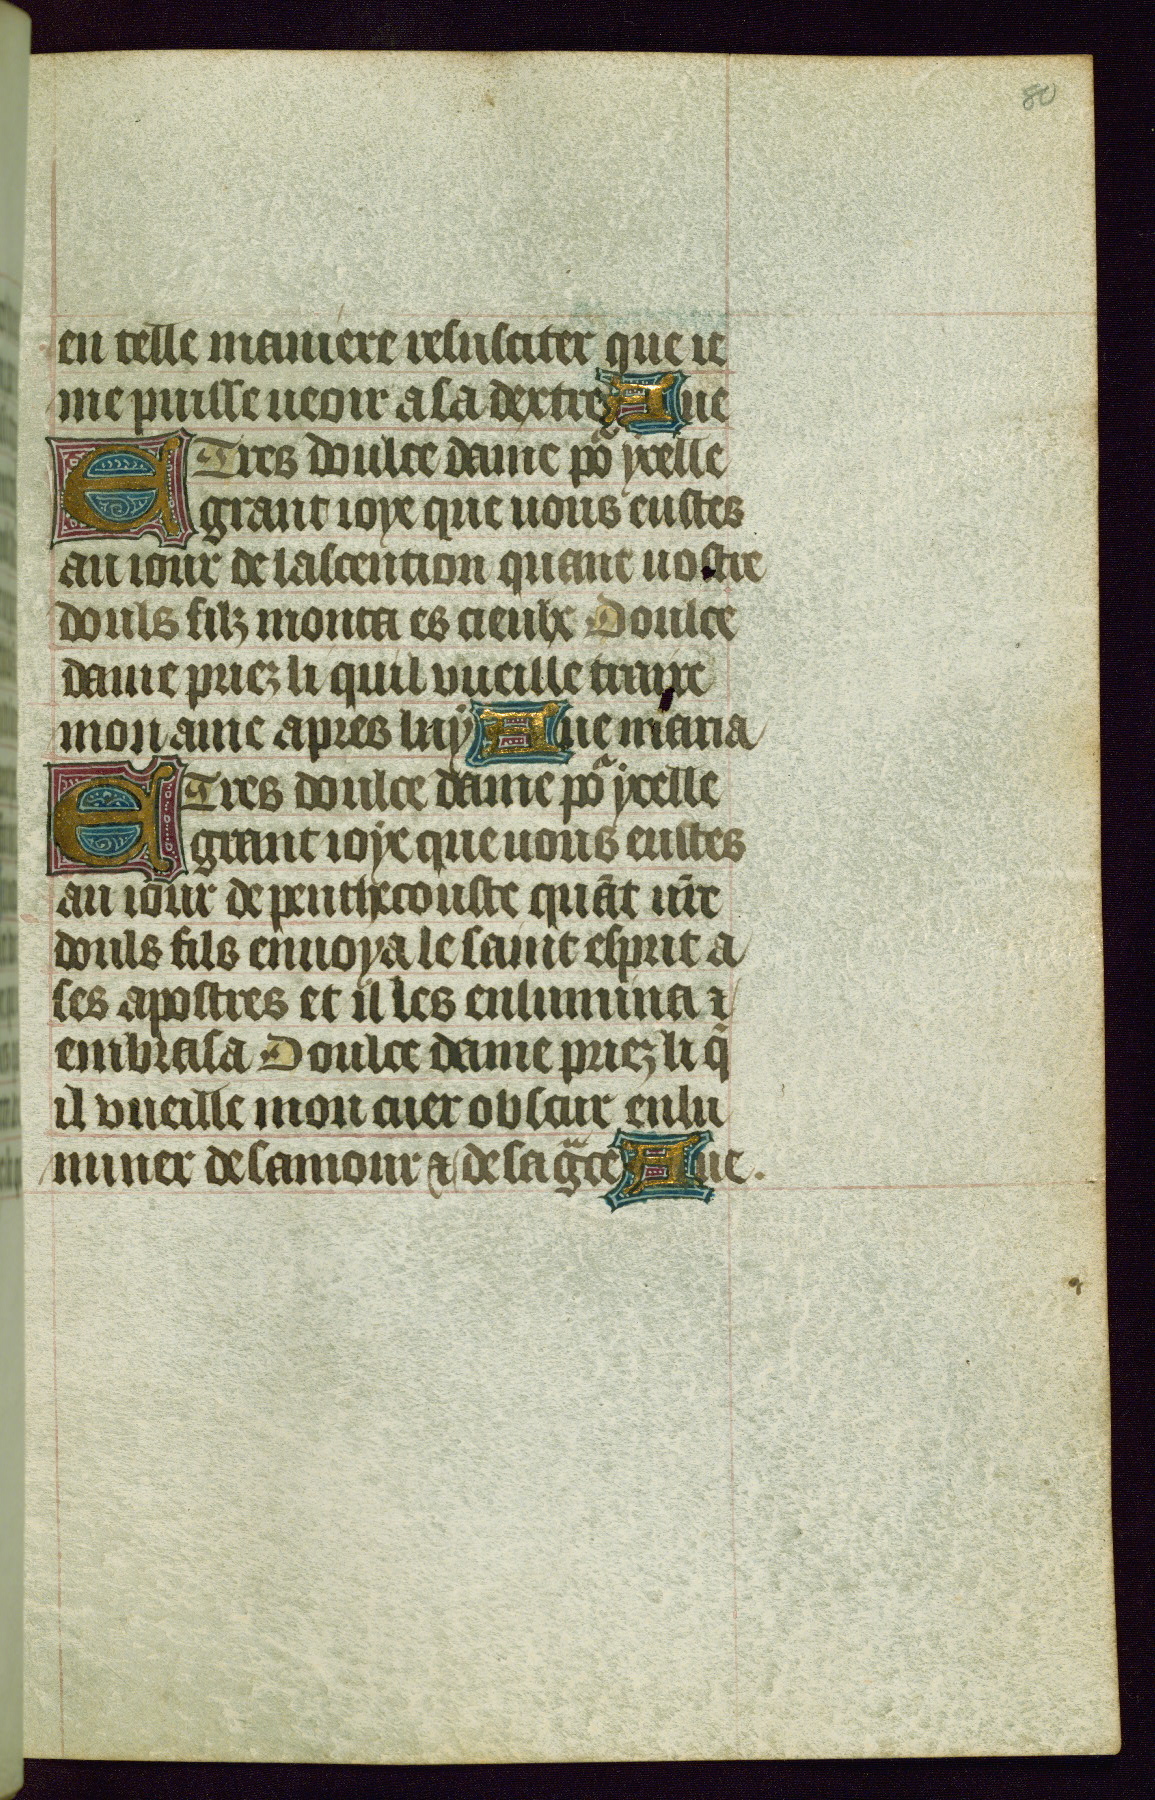 80
en telle maniere resusciter que ie
me puisse ueoir a sa dextre Aue
E Tres doulce dame po᷑ ycelle
grant ioye que uous eustes
au iour de lascention quant uostre
douls filz monta es cieulx Doulce
dame priez li quil vueille traire
mon ame apres luy Aue maria
E Tres doulce dame po᷑ ycelle
grant ioye que uous eustes
au iour de penthecouste quãt ur̃e
douls fils enuoya le saint esprit a
ses apostres et il les enlumina ⁊
embrasa Doulce dame priez li q̃
il vueille mon cuer obscur enlu
miner de samour ⁊ de sa gᷓce Aue.